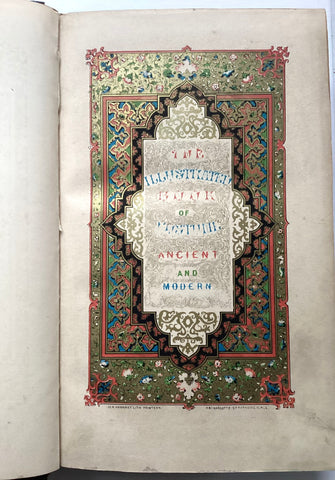 THE
ILLUSTRATED
BOOK
OF
COSTUME
ANCIENT
AND
MODERN
LITH PRINTERS